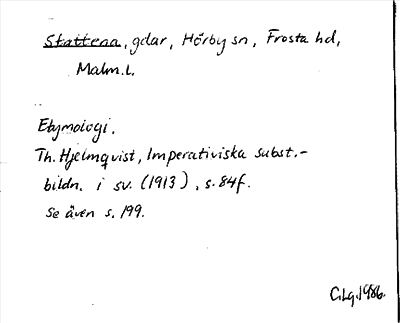 Stattena, gdar, Hörby sn, Frosta hd,
Malm.l.
Etymologi.
Th. Hjelmqvist, Imperativiska subst.-
bildn. i sv. (1913), s. 84f.
Se även s. 199.
C.Lg. 1986.